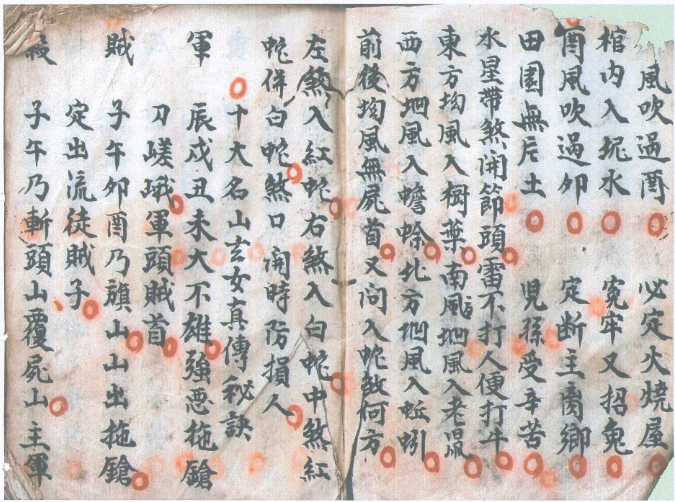 風吹過酉 必定火燒屋
棺内入坭水 牢又招
酉風吹過卯 定断主离鄉
田園無片土 児孫受辛苦
水星帶煞開節頭雷不打人便打牛
東方均風入樹葉南風地風入老鼠
西方地風入蟾蜍北方地風入蚯蚓
前後均風無屍首又问入蛇煞何方
左煞入紅蛇右煞入白蛇中煞紅
蛇併白蛇煞口開時防損人
十大名山玄女真傳秘訣
軍 辰戌丑未大不雄強恶拖鎗
刀嵯峨軍頭賊首
賊 子午卯酉乃旗山山出拖鎗
定出流徒賊子
子午乃斬頭山覆屍山主軍